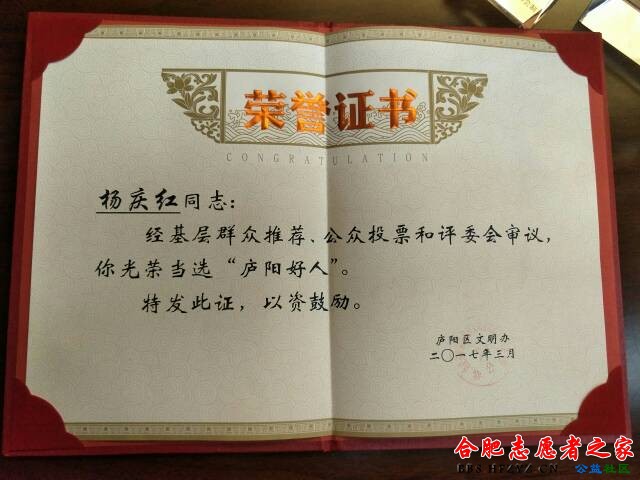 荣誉证书
CONGRATULATION
杨庆红同志：
经基层群众推荐、公众投票和评委会审议，
你光荣当选“庐阳好人”。
特发此证，以资鼓励。
庐阳区文明办
二〇一七年三月
合肥志愿者之家
BBS.HFZYZ.CN 公益社区